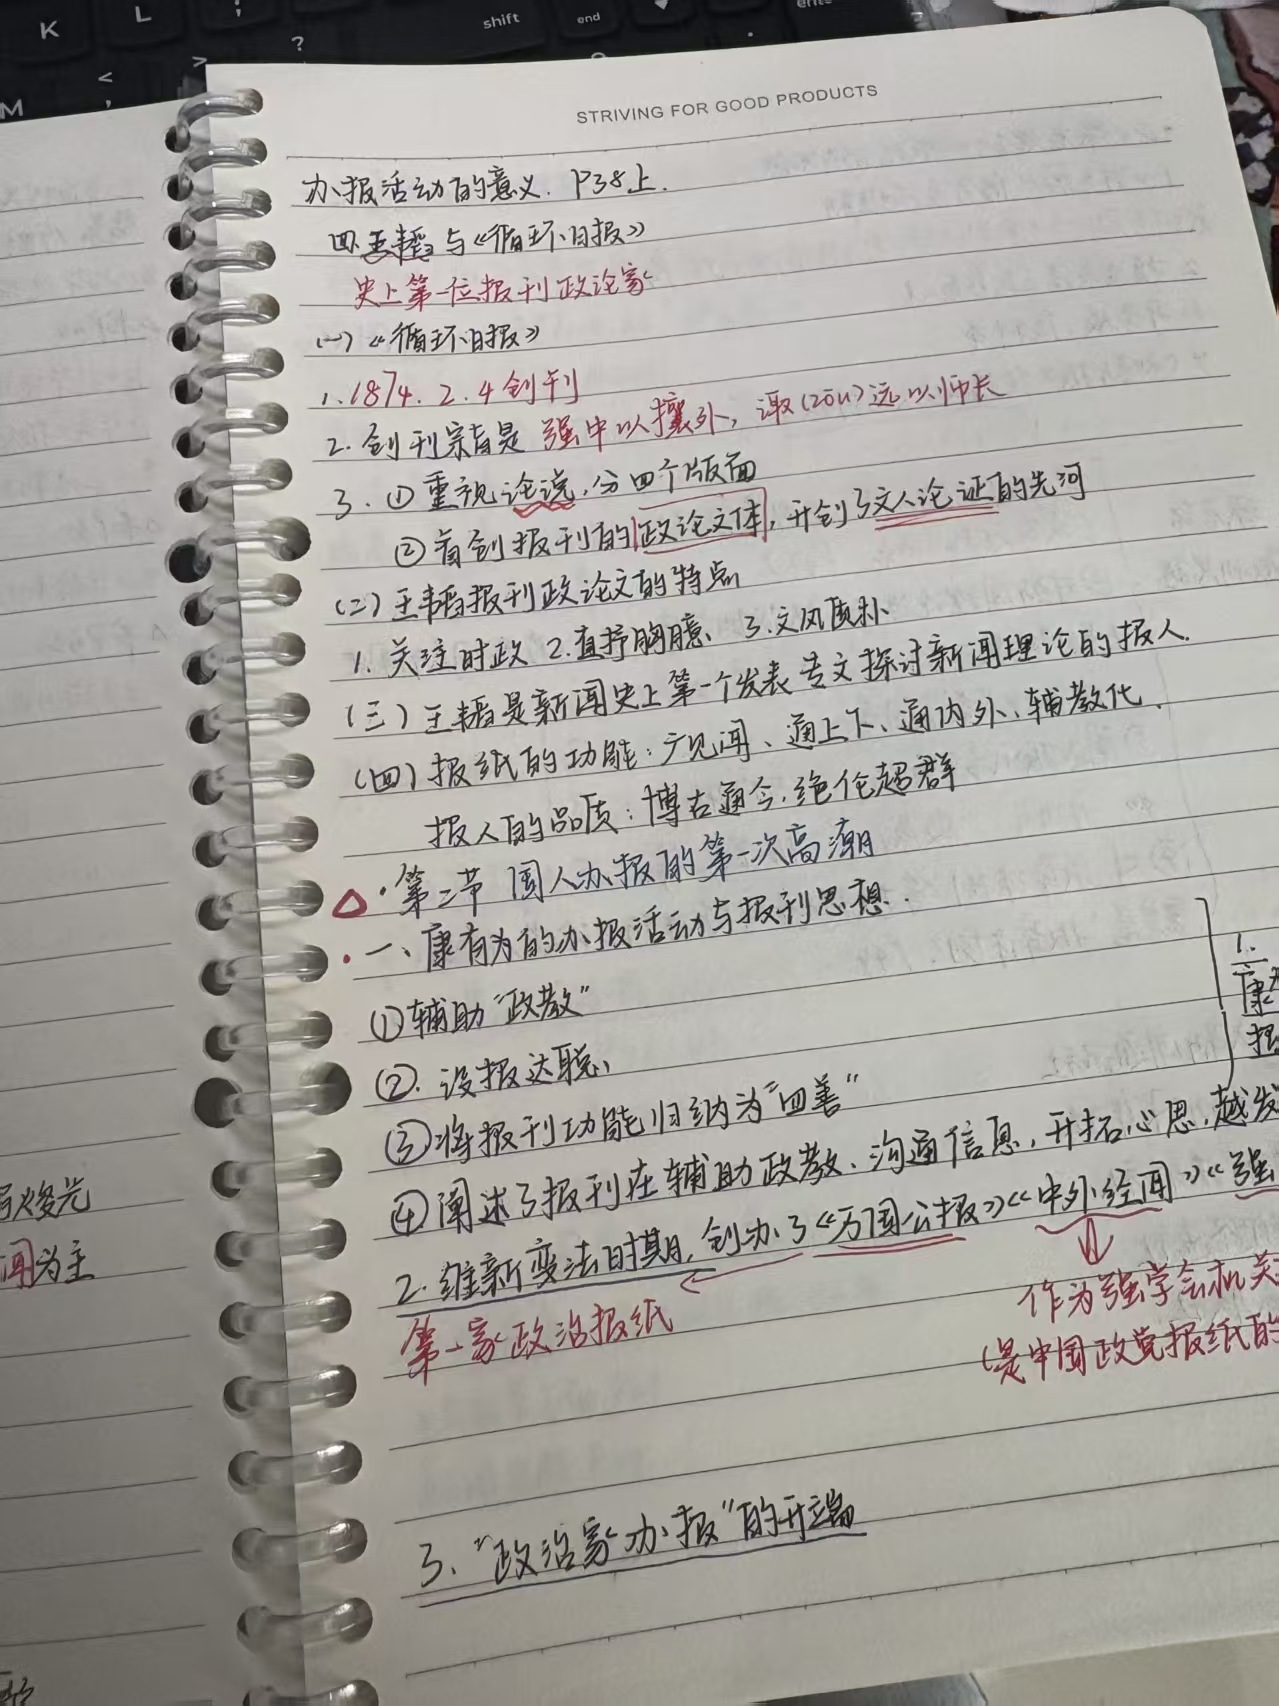 K
L
shift
end
M
<
>
?
,
;
STRIVING FOR GOOD PRODUCTS
办报活动的意义. P38上.
四、王韬与《循环日报》
史上第一位报刊政论家
(一)《循环日报》
1. 1874. 2. 4创刊
2. 创刊宗旨是 强中以攘外, 诹(zōu)远以师长
3. ①重视论说, 分四个版面
②首创报刊的政论文体, 开创了文人论证的先河
(二)王韬报刊政论文的特点
1. 关注时政 2. 直抒胸臆、3. 文风质朴
(三)王韬是新闻史上第一个发表专文探讨新闻理论的报人.
(四)报纸的功能: 广见闻、通上下、通内外、辅教化.
报人的品质: 博古通今, 绝伦超群
△·第二节 国人办报的第一次高潮
·一、康有为的办报活动与报刊思想.
1.
康
报
①辅助"政教"
②. 设报达聪、
③将报刊功能归纳为"四善"
④阐述了报刊在辅助政教、沟通信息, 开拓心思, 越发
2. 维新变法时期, 创办了《万国公报》《中外纪闻》《强
第一家政治报纸
作为强学会机关
(是中国政党报纸的
3、"政治家办报"的开端
闻为主